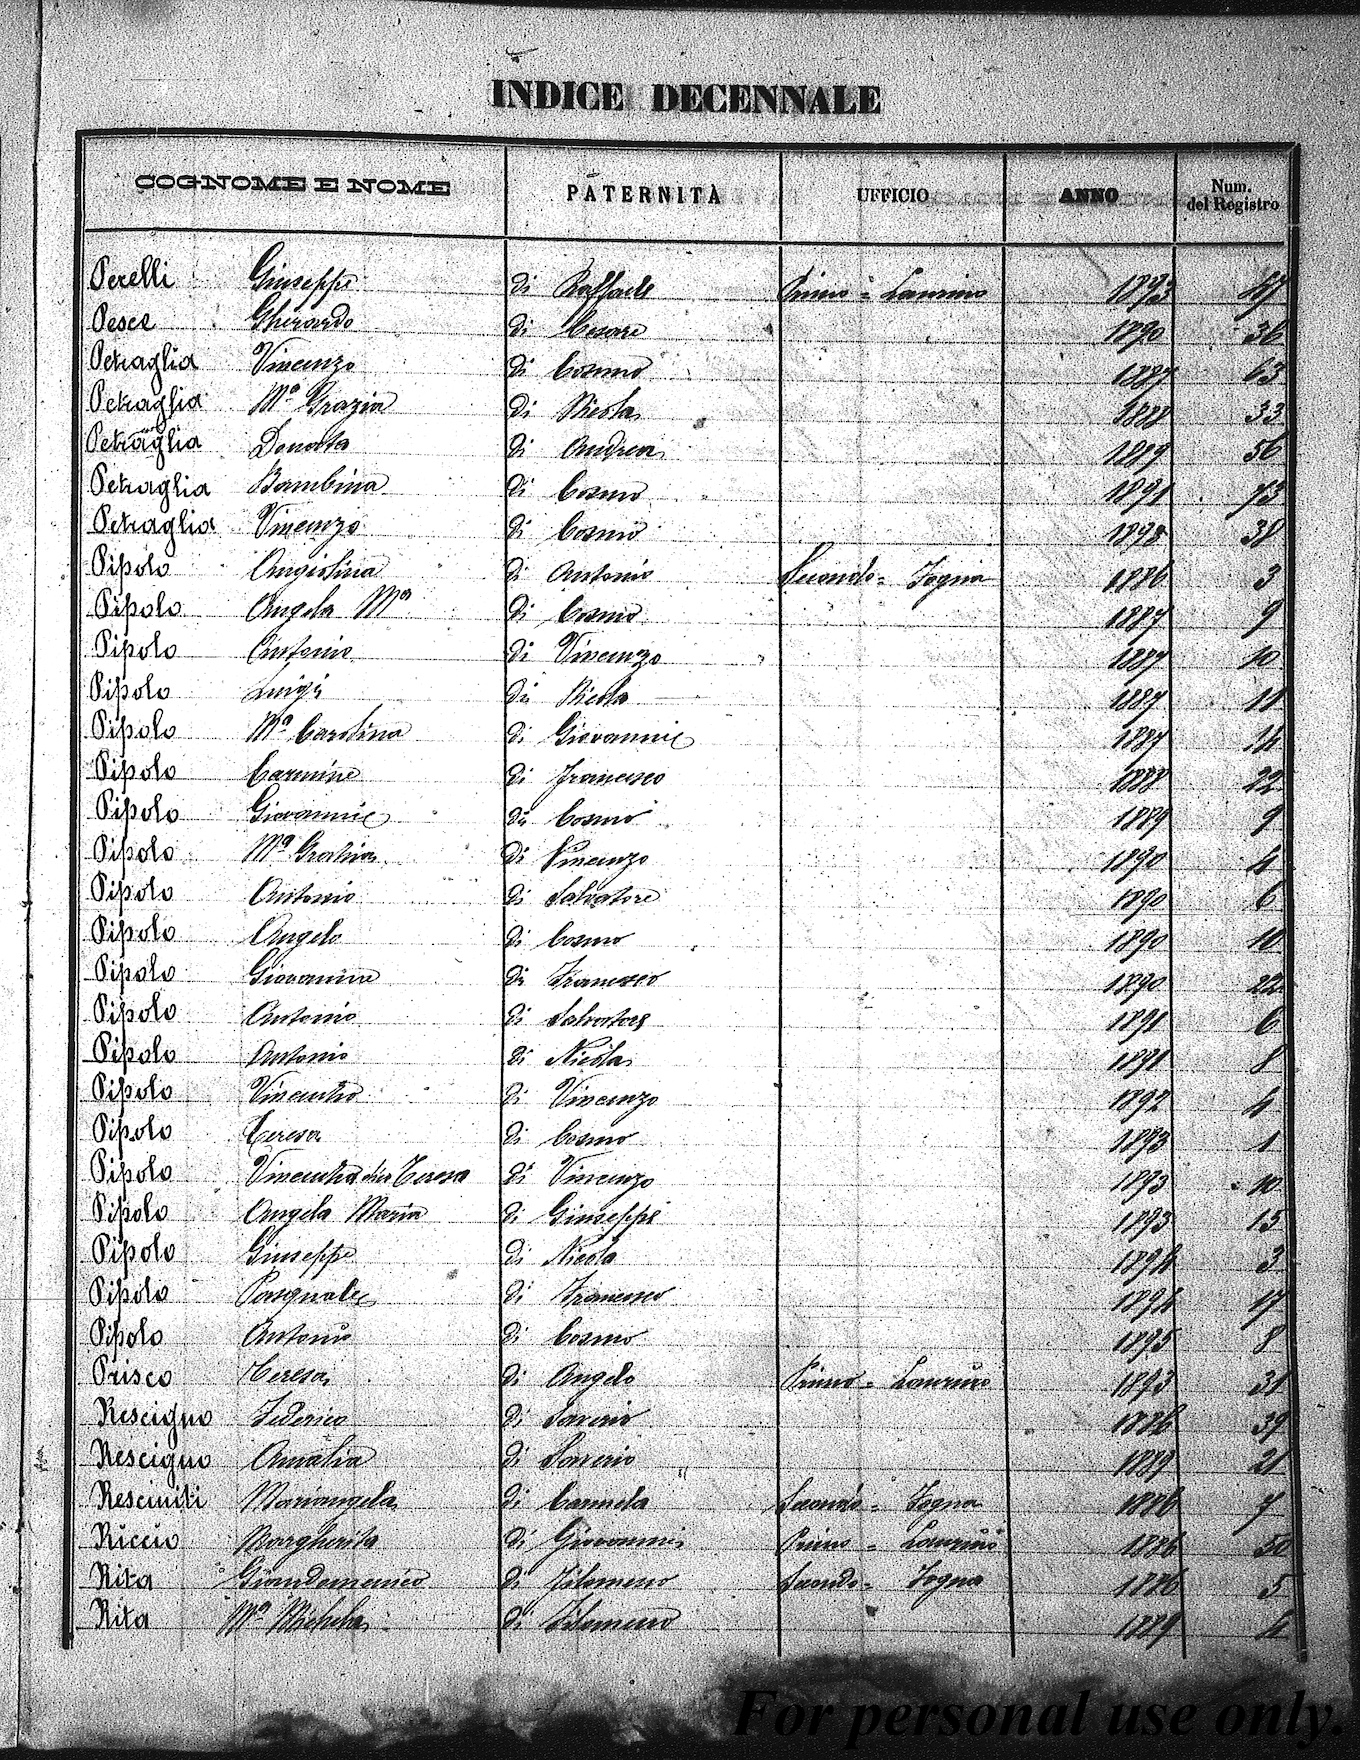 INDICE DECENNALE
COGNOME E NOME PATERNITÀ UFFICIO ANNO Num. del Registro
Perelli Giuseppe di Raffaele Primo = Laurino 1893 47
Pesce Gherardo di Cesare 1890 36
Petraglia Vincenzo di Cosmo 1887 63
Petraglia Mª Grazia di Nicola 1888 33
Petraglia Donata di Andrea 1889 56
Petraglia Bambina di Cosmo 1891 73
Petraglia Vincenzo di Cosmo 1898 38
Pipolo Angiolina di Antonio Secondo = Fogna 1886 3
Pipolo Angela Mª di Cosmo 1887 9
Pipolo Antonio di Vincenzo 1887 10
Pipolo Luigi di Nicola 1887 11
Pipolo Mª Carolina di Giovanni 1887 14
Pipolo Carmine di Francesco 1888 22
Pipolo Giovannie di Cosmo 1889 9
Pipolo Mª Grazia di Vincenzo 1890 4
Pipolo Antonio di Salvatore 1890 6
Pipolo Angelo di Cosmo 1890 10
Pipolo Giovannina di Francesco 1890 22
Pipolo Antonio di Salvatore 1891 6
Pipolo Antonio di Nicola 1891 8
Pipolo di Vincenzo 1892 4
Pipolo Teresa di Cosmo 1893 1
Pipolo Teresa di Vincenzo 1893 10
Pipolo Angela Maria di Giuseppe 1893 15
Pipolo Giuseppe di Nicola 1894 3
Pipolo Pasquale di Francesco 1894 17
Pipolo Antonio di Cosmo 1895 8
Prisco Teresa di Angelo Primo = Laurino 1893 31
Rescigno Federico di Saverio 1886 39
Rescigno Amalia di Saverio 1889 21
Resciniti Mariangela di Carmela Secondo = Fogna 1886 7
Riccio Margherita di Giovanni Primo = Laurino 1886 50
Rita Giandomenico di Filomeno Secondo = Fogna 1886 5
Rita Mª Michela di Filomeno 1889 4
For personal use only.